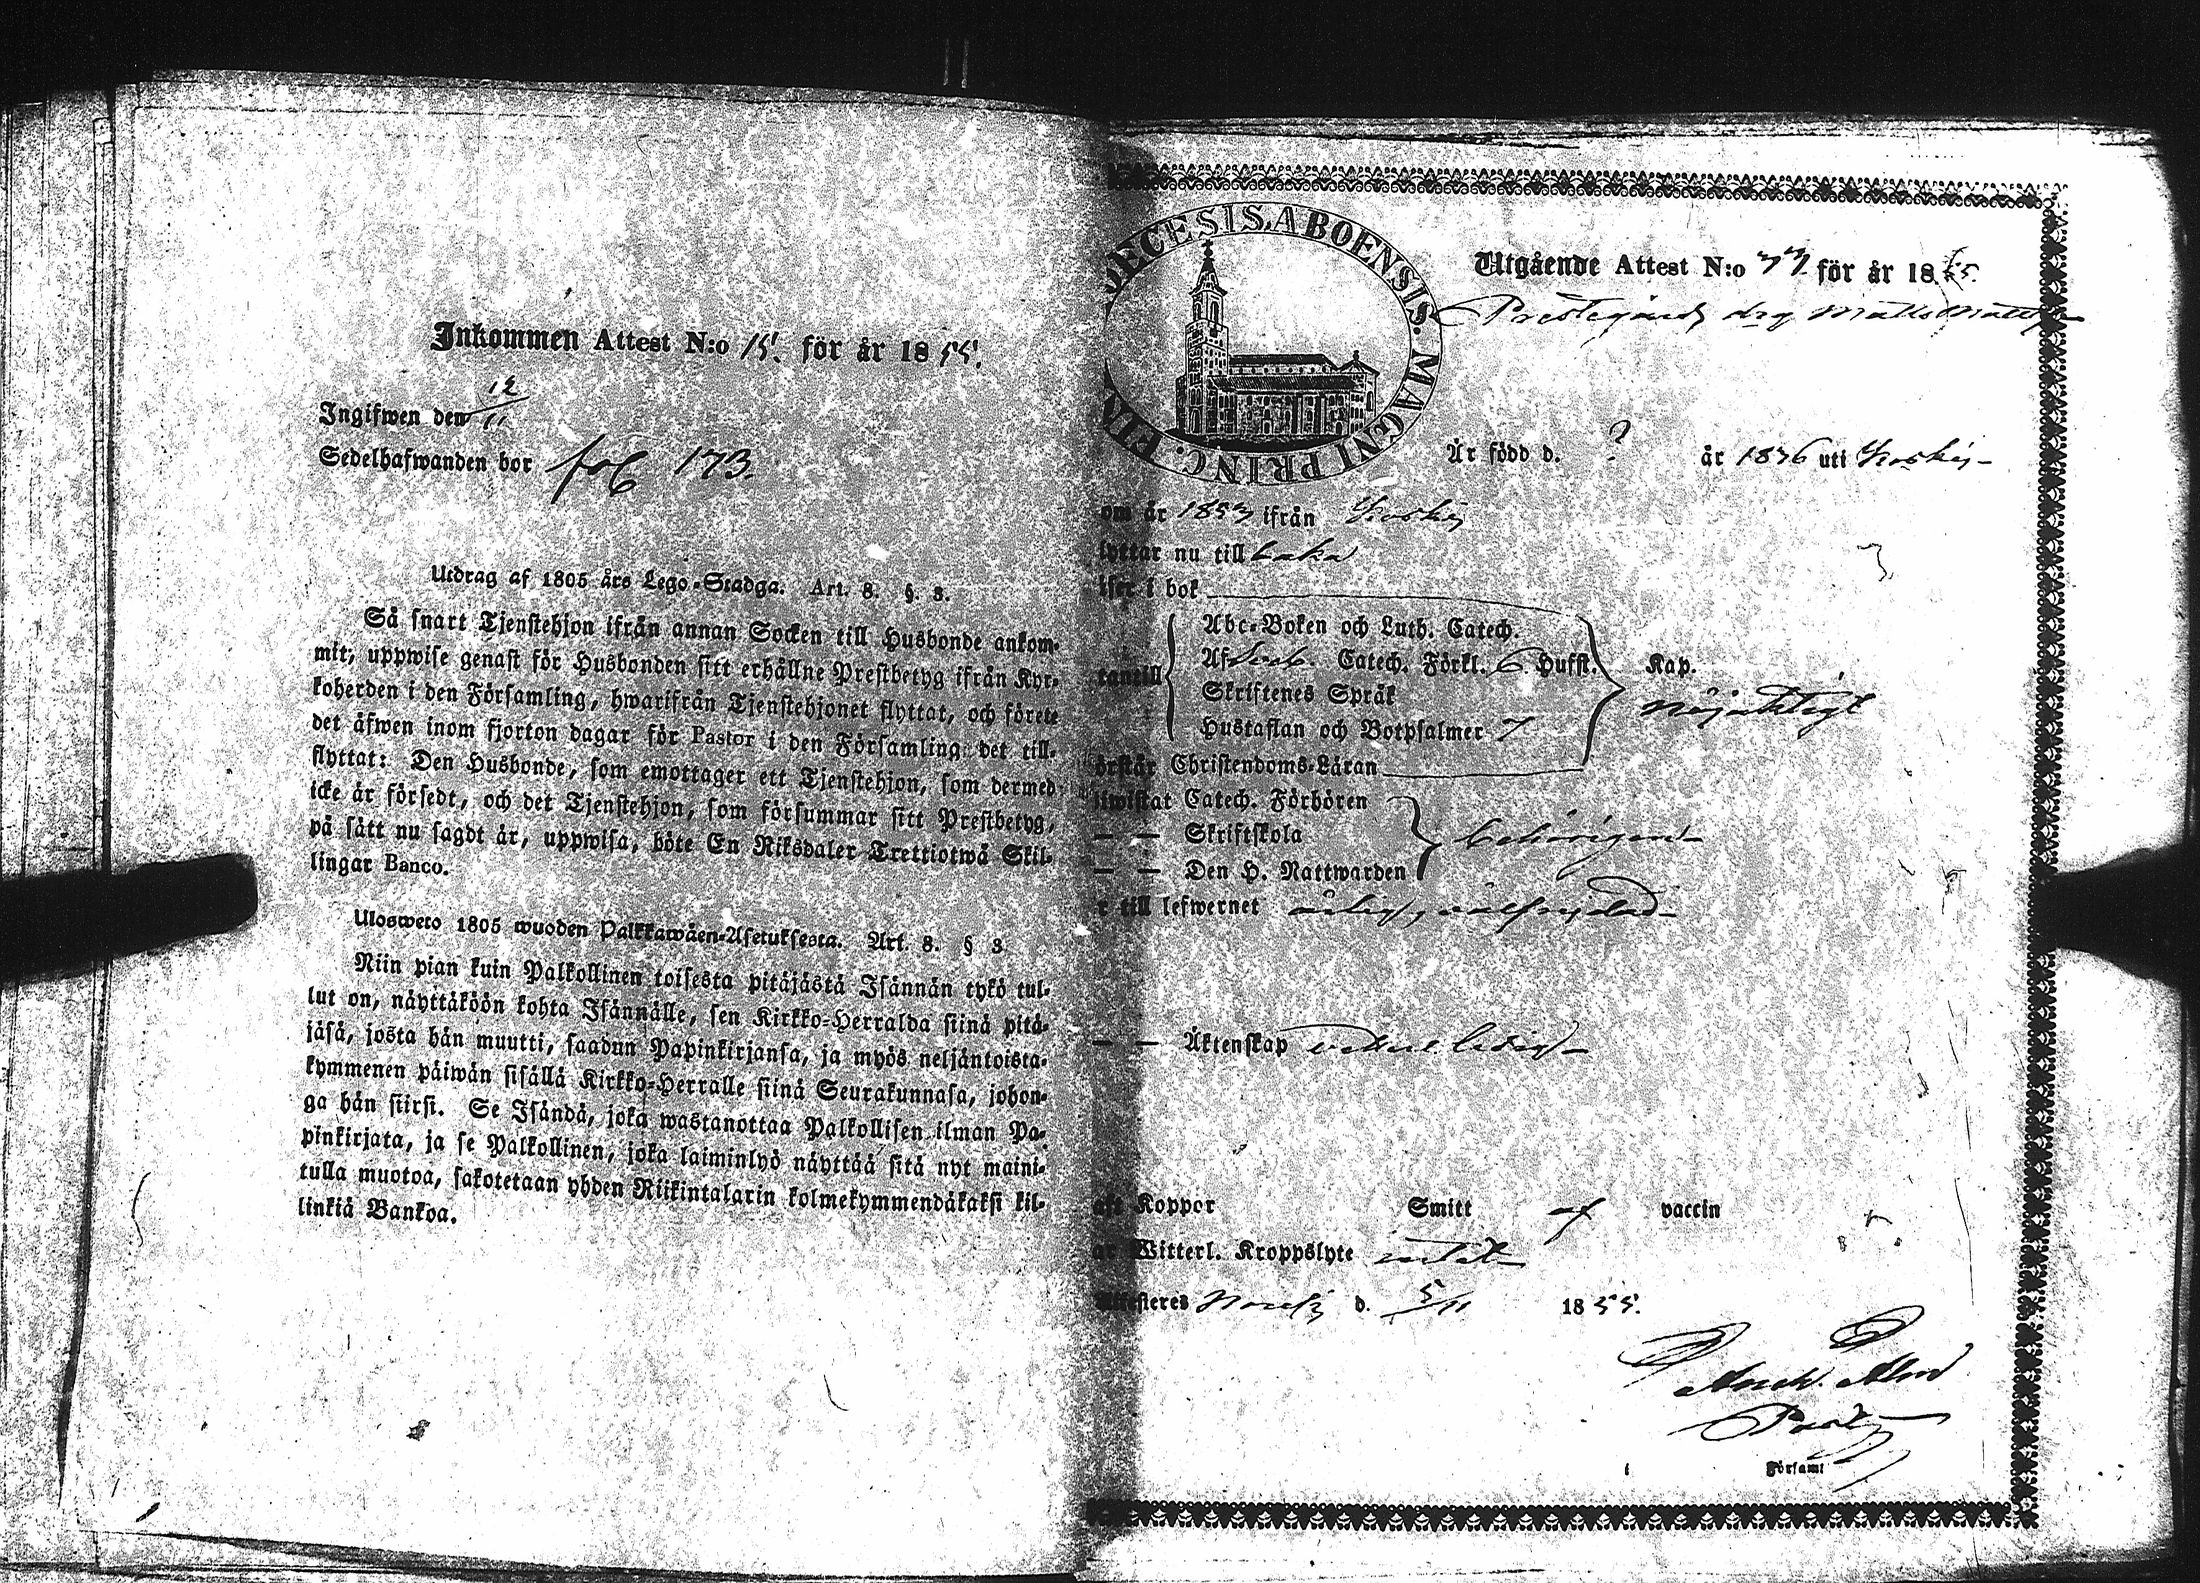 Inkommen Attest N:o 15. för år 1855.
Ingifwen den 12/11
Sedelhafwanden bor fol 173.
Utdrag af 1805 års Lego-Stadga. Art. 8. §. 3.
Så snart Tjenstehjon ifrån annan Socken till Husbonde ankom-
mit, uppwise genast för Husbonden sitt erhållne Prestbetyg ifrån Kyr-
koherden i den Församling, hwarifrån Tjenstehjonet flyttat, och förete
det äfwen inom fjorton dagar för Pastor i den Församling det till-
flyttat: Den Husbonde, som emottager ett Tjenstehjon, som dermed
icke är försedt, och det Tjenstehjon, som försummar sitt Prestbetyg,
på sätt nu sagdt är, uppwisa, böte En Riksdaler Trettiotwå Skil-
lingar Banco.
Ulosweto 1805 wuoden Palkkawäen-Asetuksesta. Art. 8. § 3.
Niin pian kuin Palkollinen toisesta pitäjästä Isännän tykö tul-
lut on, näyttäköön kohta Isännälle, sen Kirkko-Herralda siinä pitä-
jäsä, josta hän muutti, saadun Papinkirjansa, ja myös neljäntoista-
kymmenen päiwän sisällä Kirkko-Herralle siinä Seurakunnasa, johon-
ga hän siirsi. Se Isändä, joka wastanottaa Palkollisen ilman Pa-
pinkirjata, ja se Palkollinen, joka laiminlyö näyttää sitä nyt maini-
tulla muotoa, sakotetaan yhden Riikintalarin kolmekymmendäkaksi kil-
linkiä Bankoa.
DECESIS ABOENSIS. MAGNI PRINC. FIN
Utgående Attest N:o för år 1855.
Prestegårds drg Matts
Är född d. ? år 1836 uti Koskis
om år 1853 ifrån Koskis
lyttar nu till baka
iser i bok
Abc-Boken och Luth. Catech.
tantill Af Catech. Förkl. 6 Hufst. Kap.
Skriftenes Språk nöjaktigt
Hustaflan och Botpsalmer 7
örstår Christendoms-Läran
iwistat Catech. Förhören
— — Skriftskola behörigen
— — Den H. Nattwarden
r till lefwernet ärlig, välfrejdad
— — Äktenskap ledig
aft Koppor Smitt af vaccin
ar Witterl. Kroppslyte intet
Attesteres d. 5/11 1855.
i Församl